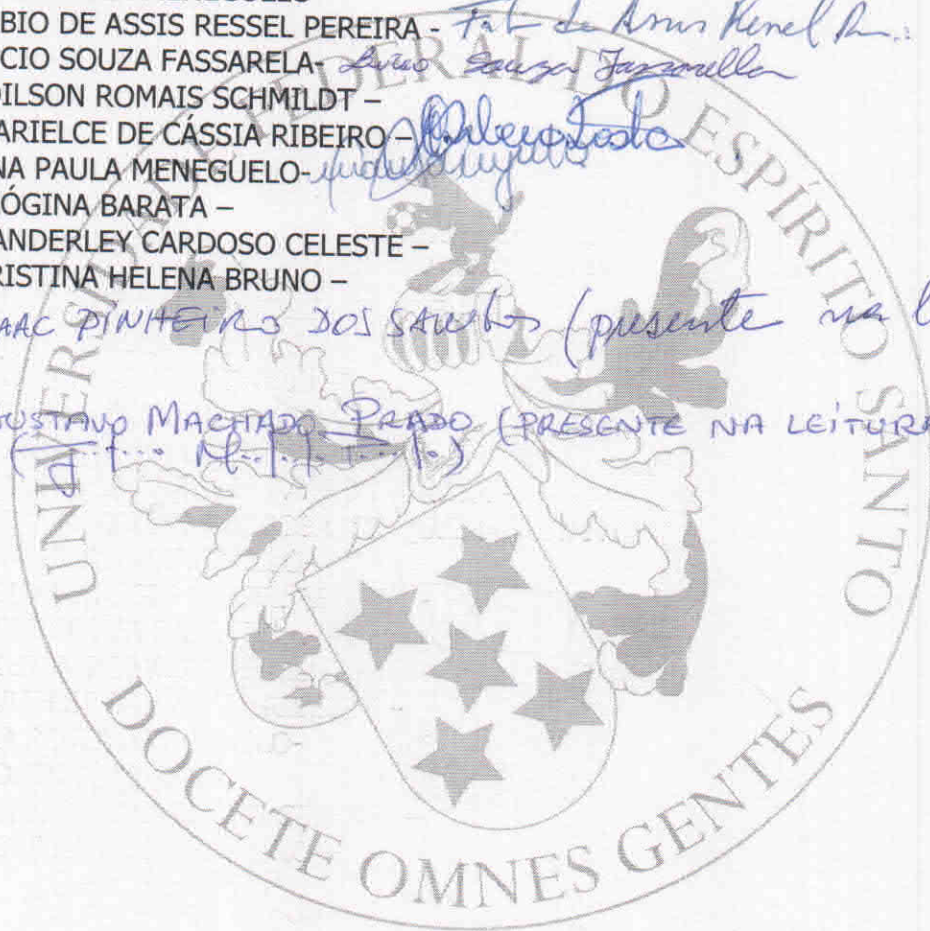 BIO DE ASSIS RESSEL PEREIRA -
CIO SOUZA FASSARELA- Lúcio Souza Fassarella
DILSON ROMAIS SCHMILDT –
ARIELCE DE CÁSSIA RIBEIRO –
NA PAULA MENEGUELO-
ÓGINA BARATA –
ANDERLEY CARDOSO CELESTE –
RISTINA HELENA BRUNO –
AAC PINHEIRO DOS SANTOS (presente na l
USTAVO MACHADO PRADO (PRESENTE NA LEITURA
UNIVERSIDADE FEDERAL DO ESPÍRITO SANTO
DOCETE OMNES GENTES